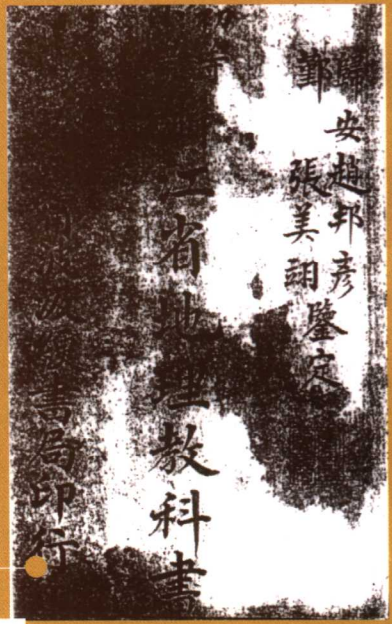 歸安趙邦彥
鄞張美翊鑒定
江省地理教科書
編書局印行